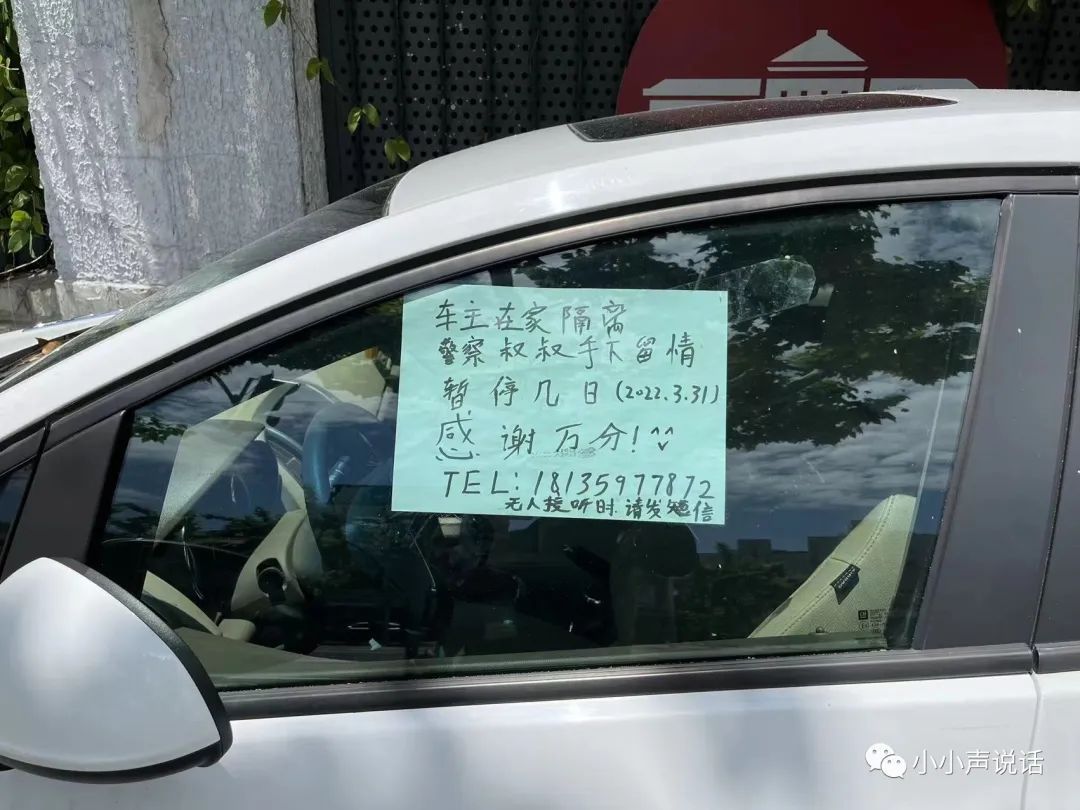 车主在家隔离
警察叔叔手下留情
暂停几日(2022.3.31)
感谢万分!^^
TEL:18135977872
无人接听时.请发短信
小小声说话